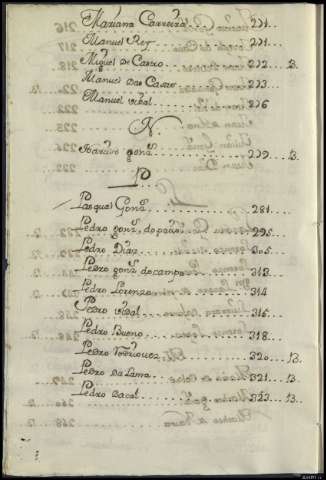 Mariana Carreira . . . . . . 221 . . . .
Manuel Rey . . . . . . . 221 . . . .
Miguel de Castro . . . . . . . 222 . . . B.
Manuel Das Castro . . . . . . . 223 . . . .
Manuel Vidal . . . . . . . 226
N.
gonz. . . . . . . . 229 . . . B.
P.
Pasqual Gonz. . . . . . . . 281 . . . .
Pedro gonz. do pazo . . . 295 . . .
Pedro Diaz . . . . . . . 305 . . .
Pedro gonz. do campo . . . . 313 . . .
Pedro Lorenzo . . . . . . . 314
Pedro vidal . . . . . . . 315 . . . .
Pedro Bueno . . . . . . . 318 . . .
Pedro Rodriguez . . . . . . 320 . . . B.
Pedro Da Lama . . . . . . . 321 . . . B.
Pedro Dacal . . . . . . . 323 . . . B.